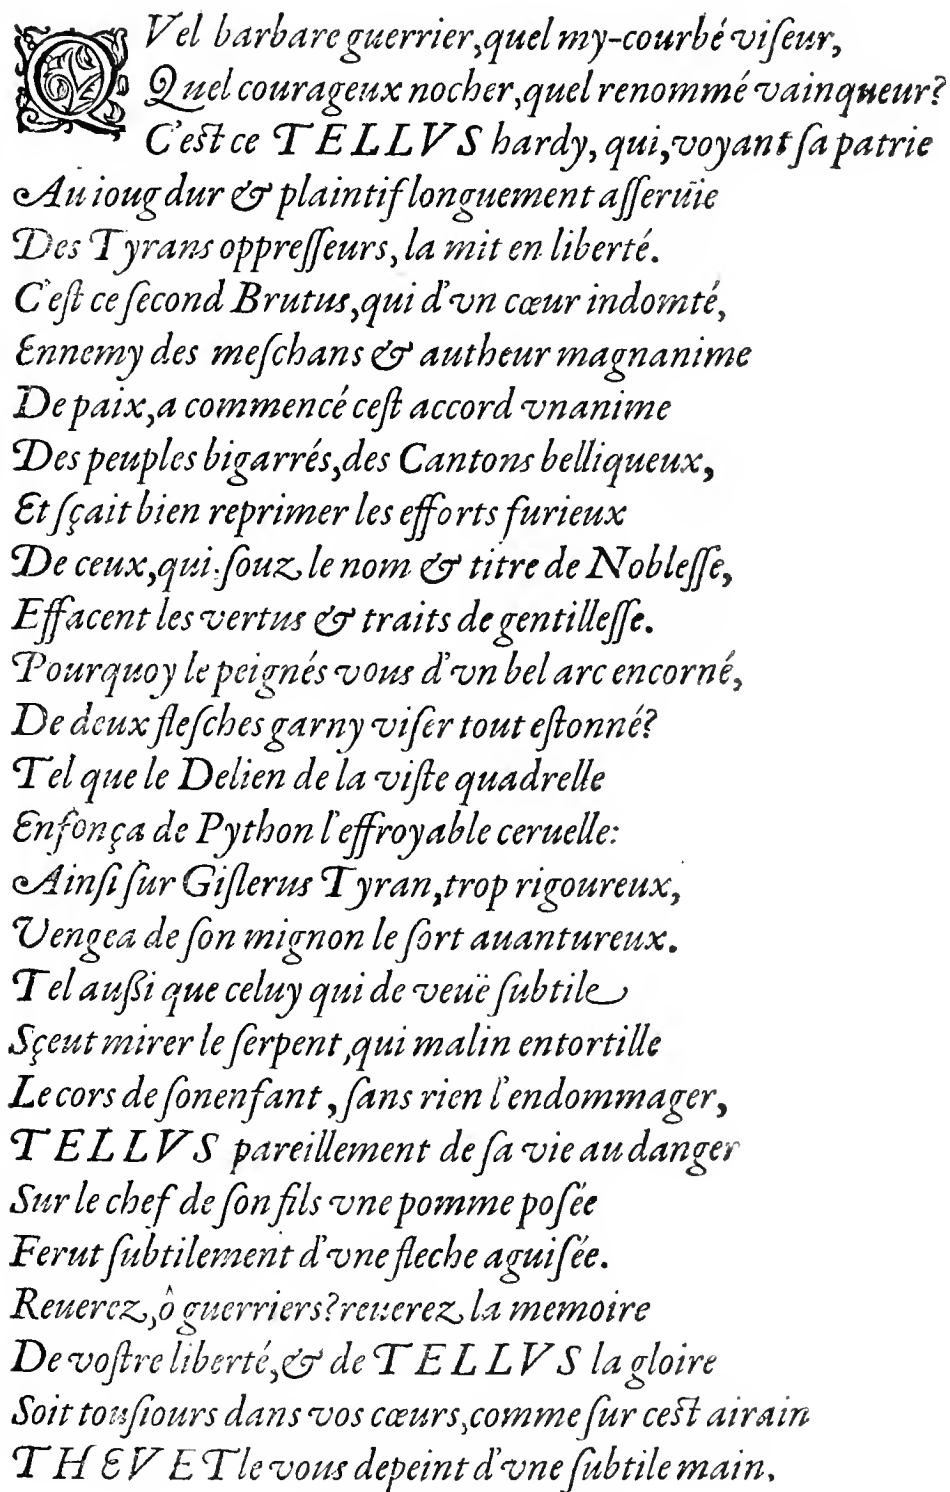 QVel barbare guerrier, quel my-courbé viſeur,
Quel courageux nocher, quel renommé vainqueur?
C'eſt ce TELLVS hardy, qui, voyant ſa patrie
Au ioug dur & plaintif longuement aſſeruie
Des Tyrans oppreſſeurs, la mit en liberté.
C'eſt ce ſecond Brutus, qui d'vn cœur indomté,
Ennemy des meſchans & autheur magnanime
De paix, a commencé ceſt accord vnanime
Des peuples bigarrés, des Cantons belliqueux,
Et ſçait bien reprimer les efforts furieux
De ceux, qui ſouz le nom & titre de Nobleſſe,
Effacent les vertus & traits de gentilleſſe.
Pourquoy le peignés vous d'vn bel arc encorné,
De deux fleſches garny viſer tout eſtonné?
Tel que le Delien de la viſte quadrelle
Enfonça de Python l'effroyable ceruelle:
Ainſi ſur Giſlerus Tyran, trop rigoureux,
Vengea de ſon mignon le ſort auantureux.
Tel auſſi que celuy qui de veuë ſubtile
Sçeut mirer le ſerpent, qui malin entortille
Le cors de ſonenfant, ſans rien l'endommager,
TELLVS pareillement de ſa vie au danger
Sur le chef de ſon fils vne pomme poſée
Ferut ſubtilement d'vne fleche aguiſée.
Reuerez, ô guerriers? reuerez la memoire
De voſtre liberté, & de TELLVS la gloire
Soit touſiours dans vos cœurs, comme ſur ceſt airain
THEVET le vous depeint d'vne ſubtile main.